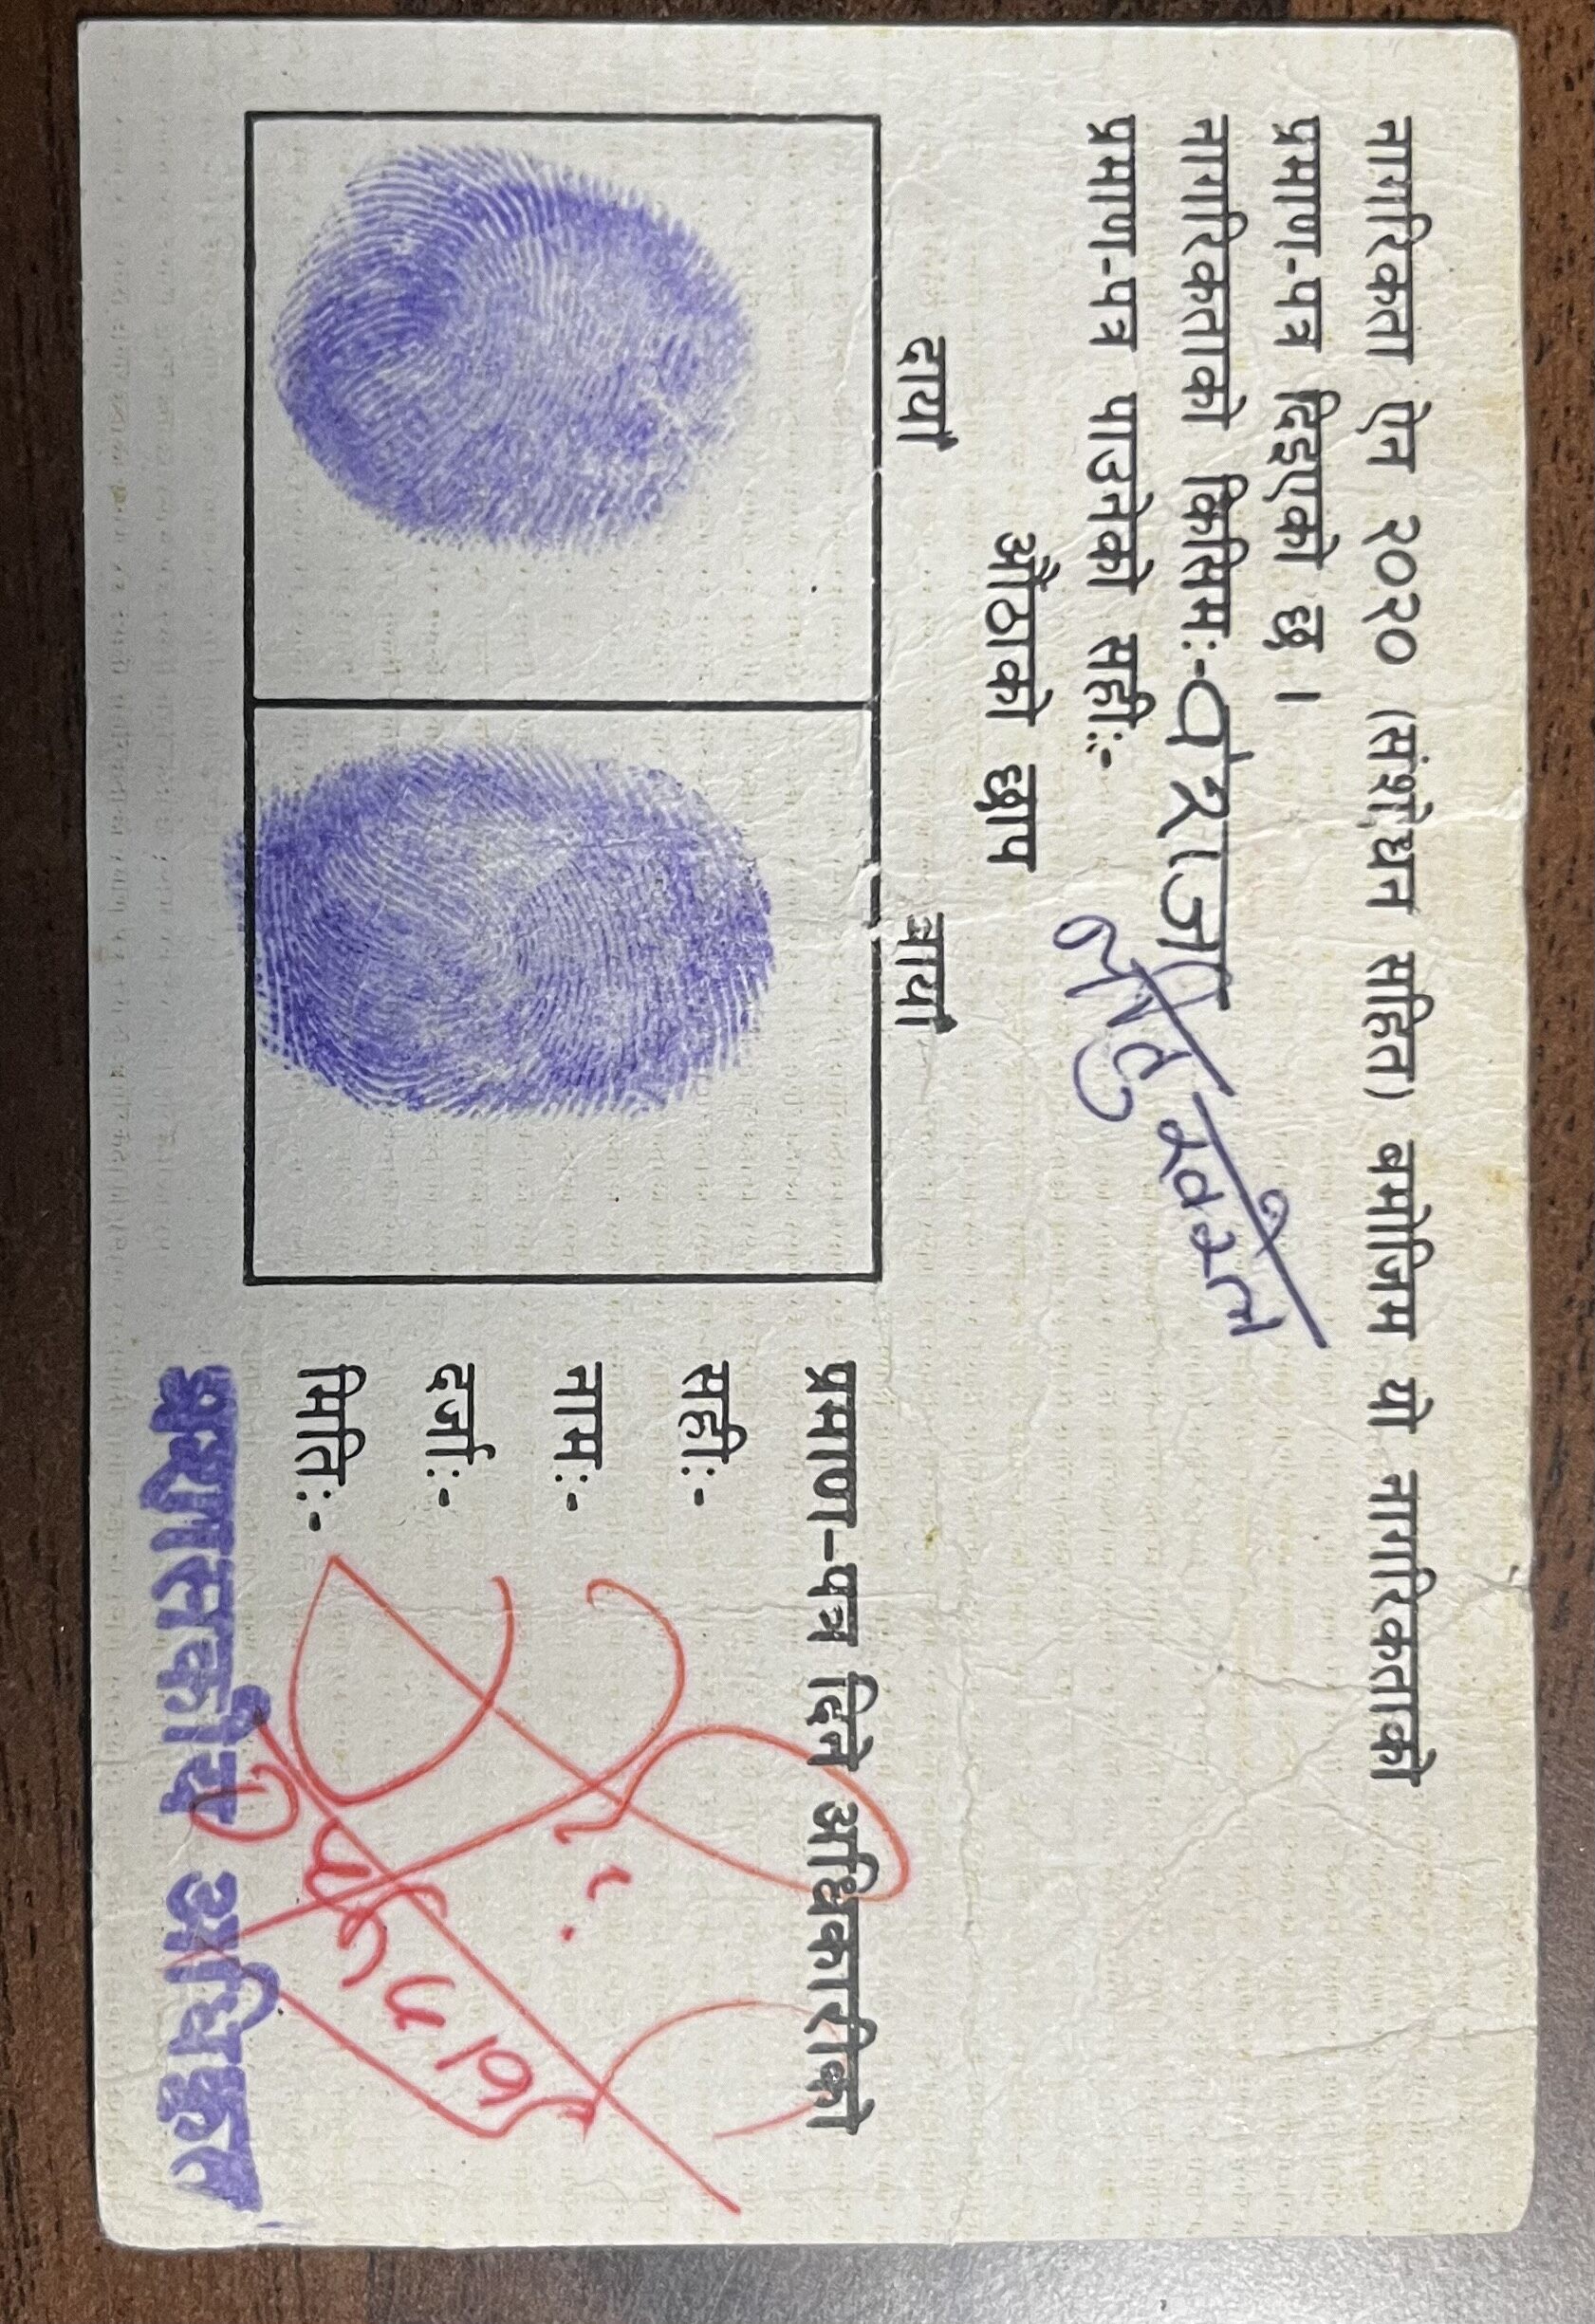 नागरिकता ऐन २०२० (संशोधन सहित) बमोजिम यो नागरिकताको
प्रमाण-पत्र दिइएको छ ।
नागरिकताको किसिमः-वंशज
प्रमाण-पत्र पाउनेको सहीः-
औंठाको छाप
दायाँ बायाँ
प्रमाण-पत्र दिने अधिकारीको
सहीः-
नामः-
दर्जाः-
मितिः-
प्रशासकीय अधिकृत